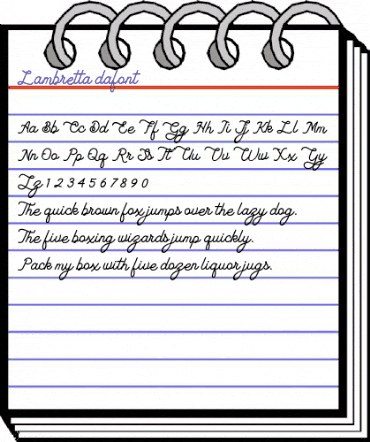 Lambretta dafont
Aa Bb Cc Dd Ee Ff Gg Hh Ii Jj Kk Ll Mm
Nn Oo Pp Qq Rr Ss Tt Uu Vv Ww Xx Yy
Zz 1 2 3 4 5 6 7 8 9 0
The quick brown fox jumps over the lazy dog.
The five boxing wizards jump quickly.
Pack my box with five dozen liquor jugs.